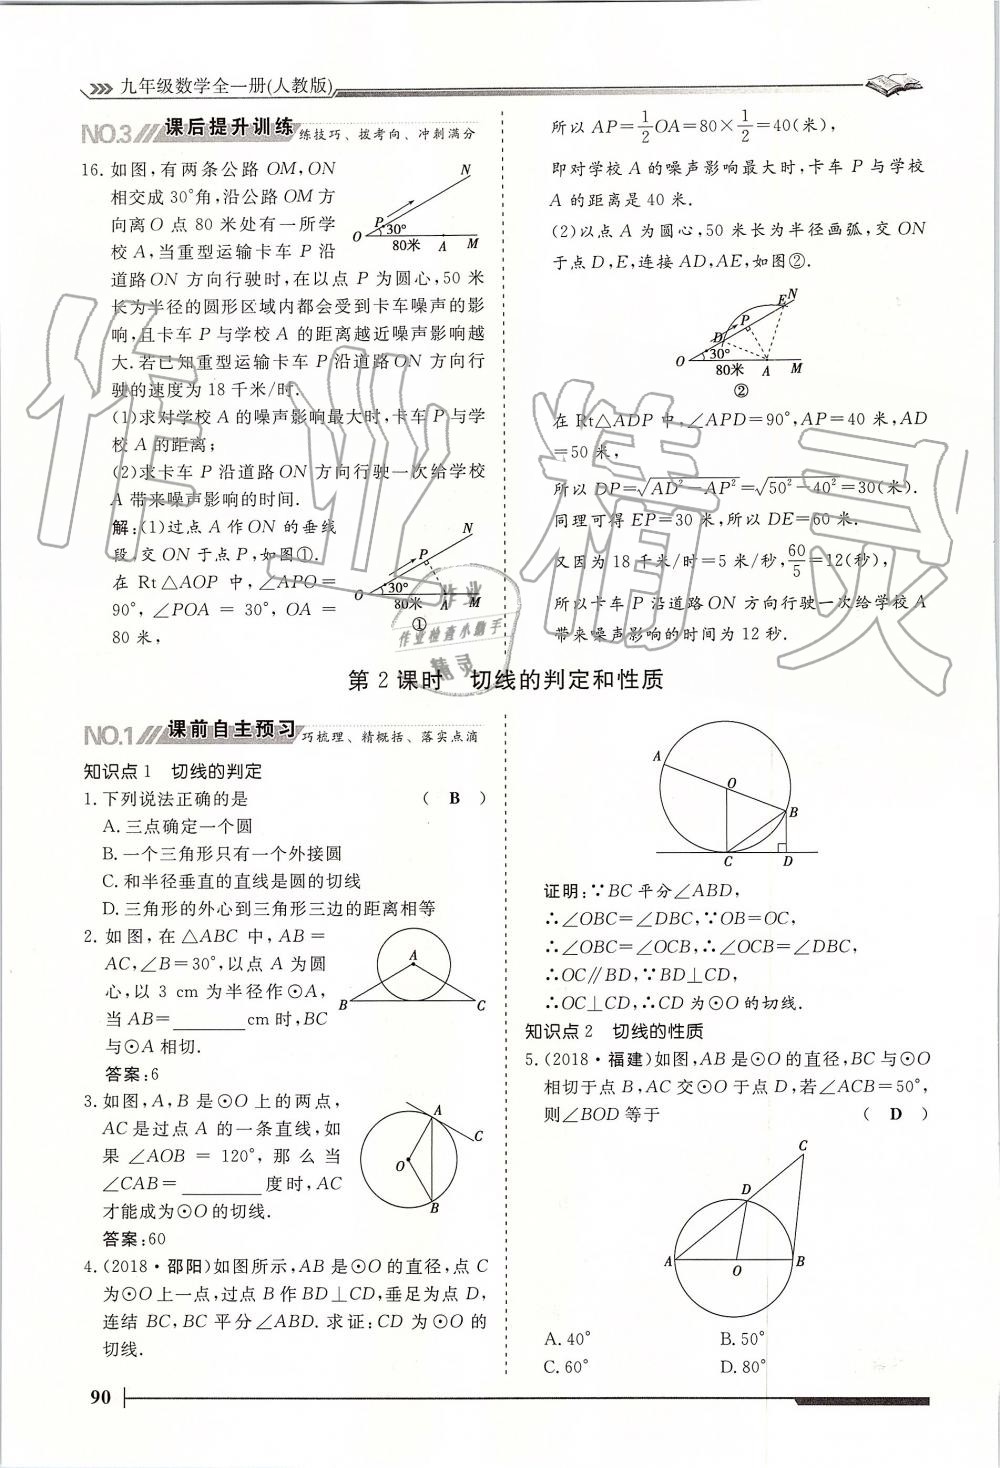 九年级数学全一册(人教版)
NO.3 课后提升训练 练技巧、拨考向、冲刺满分
16. 如图,有两条公路 OM,ON
相交成 30°角,沿公路 OM 方
向离 O 点 80 米处有一所学
校 A,当重型运输卡车 P 沿
道路 ON 方向行驶时,在以点 P 为圆心,50 米
长为半径的圆形区域内都会受到卡车噪声的影
响,且卡车 P 与学校 A 的距离越近噪声影响越
大.若已知重型运输卡车 P 沿道路 ON 方向行
驶的速度为 18 千米/时.
(1)求对学校 A 的噪声影响最大时,卡车 P 与学
校 A 的距离;
(2)求卡车 P 沿道路 ON 方向行驶一次给学校
A 带来噪声影响的时间.
解:(1)过点 A 作 ON 的垂线
段,交 ON 于点 P,如图①.
在 Rt△AOP 中,∠APO=
90°,∠POA = 30°, OA =
80 米,
N
P
O 30°
80米 A M
N
P
O 30°
80米 A M
①
所以 AP=1/2OA=80×1/2=40(米),
即对学校 A 的噪声影响最大时,卡车 P 与学校
A 的距离是 40 米.
(2)以点 A 为圆心,50 米长为半径画弧,交 ON
于点 D,E,连接 AD,AE,如图②.
E N
P
D
O 30°
80米 A M
②
在 Rt△ADP 中,∠APD=90°,AP=40 米,AD
=50 米,
所以 DP=√AD²−AP²=√50²−40²=30(米).
同理可得 EP=30 米,所以 DE=60 米.
又因为 18 千米/时=5 米/秒,60/5=12(秒),
所以卡车 P 沿道路 ON 方向行驶一次给学校 A
带来噪声影响的时间为 12 秒.
作业精灵
作业
作业检查小助手
精灵
第 2 课时 切线的判定和性质
NO.1 课前自主预习 巧梳理、精概括、落实点滴
知识点 1 切线的判定
1. 下列说法正确的是 ( B )
A. 三点确定一个圆
B. 一个三角形只有一个外接圆
C. 和半径垂直的直线是圆的切线
D. 三角形的外心到三角形三边的距离相等
2. 如图,在△ABC 中,AB=
AC,∠B=30°,以点 A 为圆
心,以 3 cm 为半径作⊙A,
当 AB=________cm 时,BC
与⊙A 相切.
答案:6
A
B C
3. 如图,A,B 是⊙O 上的两点,
AC 是过点 A 的一条直线,如
果 ∠AOB = 120°,那么当
∠CAB=________度时,AC
才能成为⊙O 的切线.
答案:60
A
C
O
B
4. (2018·邵阳)如图所示,AB 是⊙O 的直径,点 C
为⊙O 上一点,过点 B 作 BD⊥CD,垂足为点 D,
连结 BC,BC 平分∠ABD. 求证:CD 为⊙O 的
切线.
A
O
B
C D
证明:∵BC 平分∠ABD,
∴∠OBC=∠DBC,∵OB=OC,
∴∠OBC=∠OCB,∴∠OCB=∠DBC,
∴OC∥BD,∵BD⊥CD,
∴OC⊥CD,∴CD 为⊙O 的切线.
知识点 2 切线的性质
5. (2018·福建)如图,AB 是⊙O 的直径,BC 与⊙O
相切于点 B,AC 交⊙O 于点 D,若∠ACB=50°,
则∠BOD 等于 ( D )
C
D
A O B
A. 40° B. 50°
C. 60° D. 80°
90